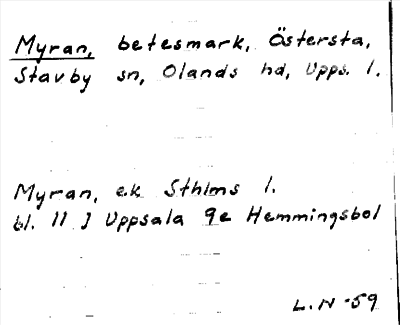 Myran, betesmark, Östersta,
Stavby sn, Olands hd, Upps. l.
Myran, ek Sthlms l.
bl. 11 J Uppsala 9e Hemmingsbol
L.N -59